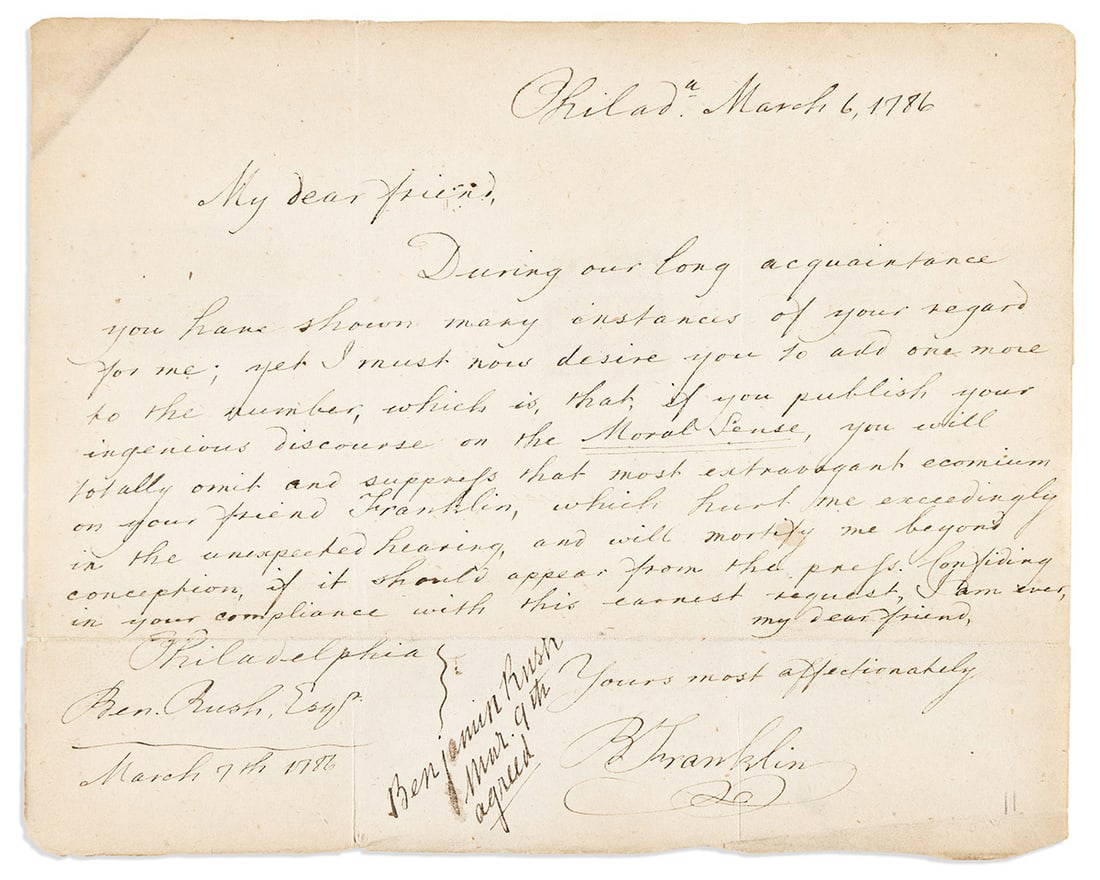 Philadᵃ. March 6, 1786
My dear friend,
During our long acquaintance
you have shown many instances of your regard
for me; yet I must now desire you to add one more
to the number, which is, that, if you publish your
ingenious discourse on the Moral Sense, you will
totally omit and suppress that most extravagant ecomium
on your friend Franklin, which hurt me exceedingly
in the unexpected hearing, and will mortify me beyond
conception, if it should appear from the press. Confiding
in your compliance with this earnest request, I am ever,
my dear friend,
Yours most affectionately
B Franklin
Philadelphia
Ben. Rush, Esqr.
March 7th 1786
Benjamin Rush
Mar. 9th
agreed
11